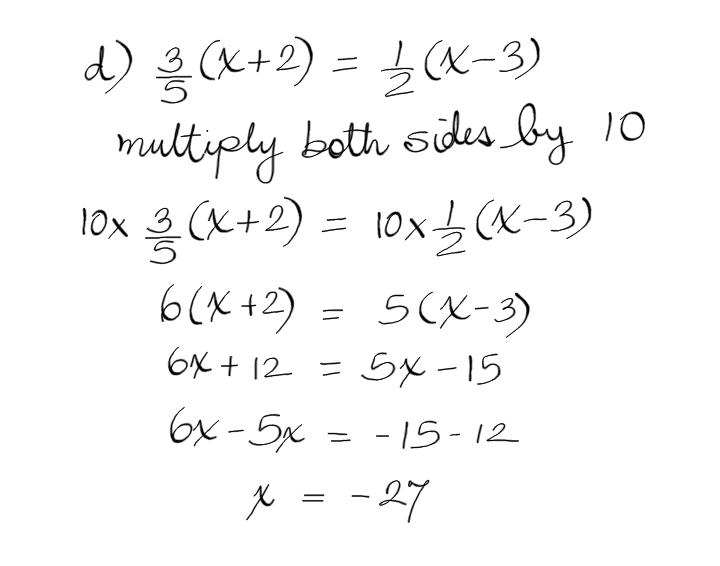 d) 3/5 (x+2) = 1/2 (x-3)
multiply both sides by 10
10x 3/5 (x+2) = 10x 1/2 (x-3)
6(x+2) = 5(x-3)
6x + 12 = 5x - 15
6x - 5x = -15 - 12
x = -27